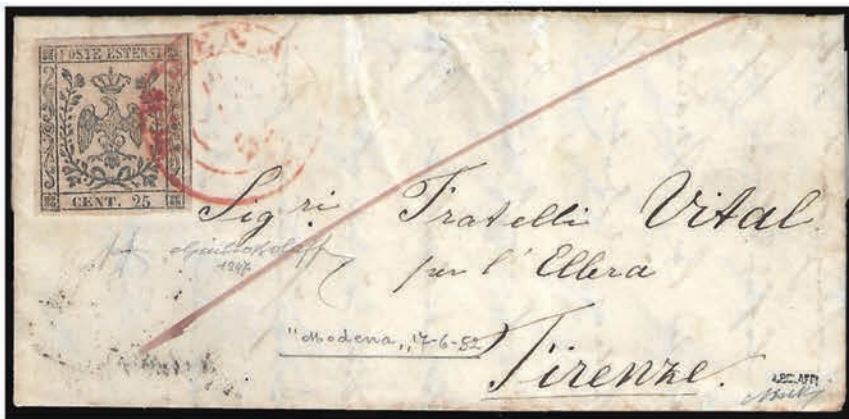 POSTE ESTENSI
CENT. 25
Sig ri Fratelli Vital
per l' Ellera
"Modena,, 17-6-52
Firenze.